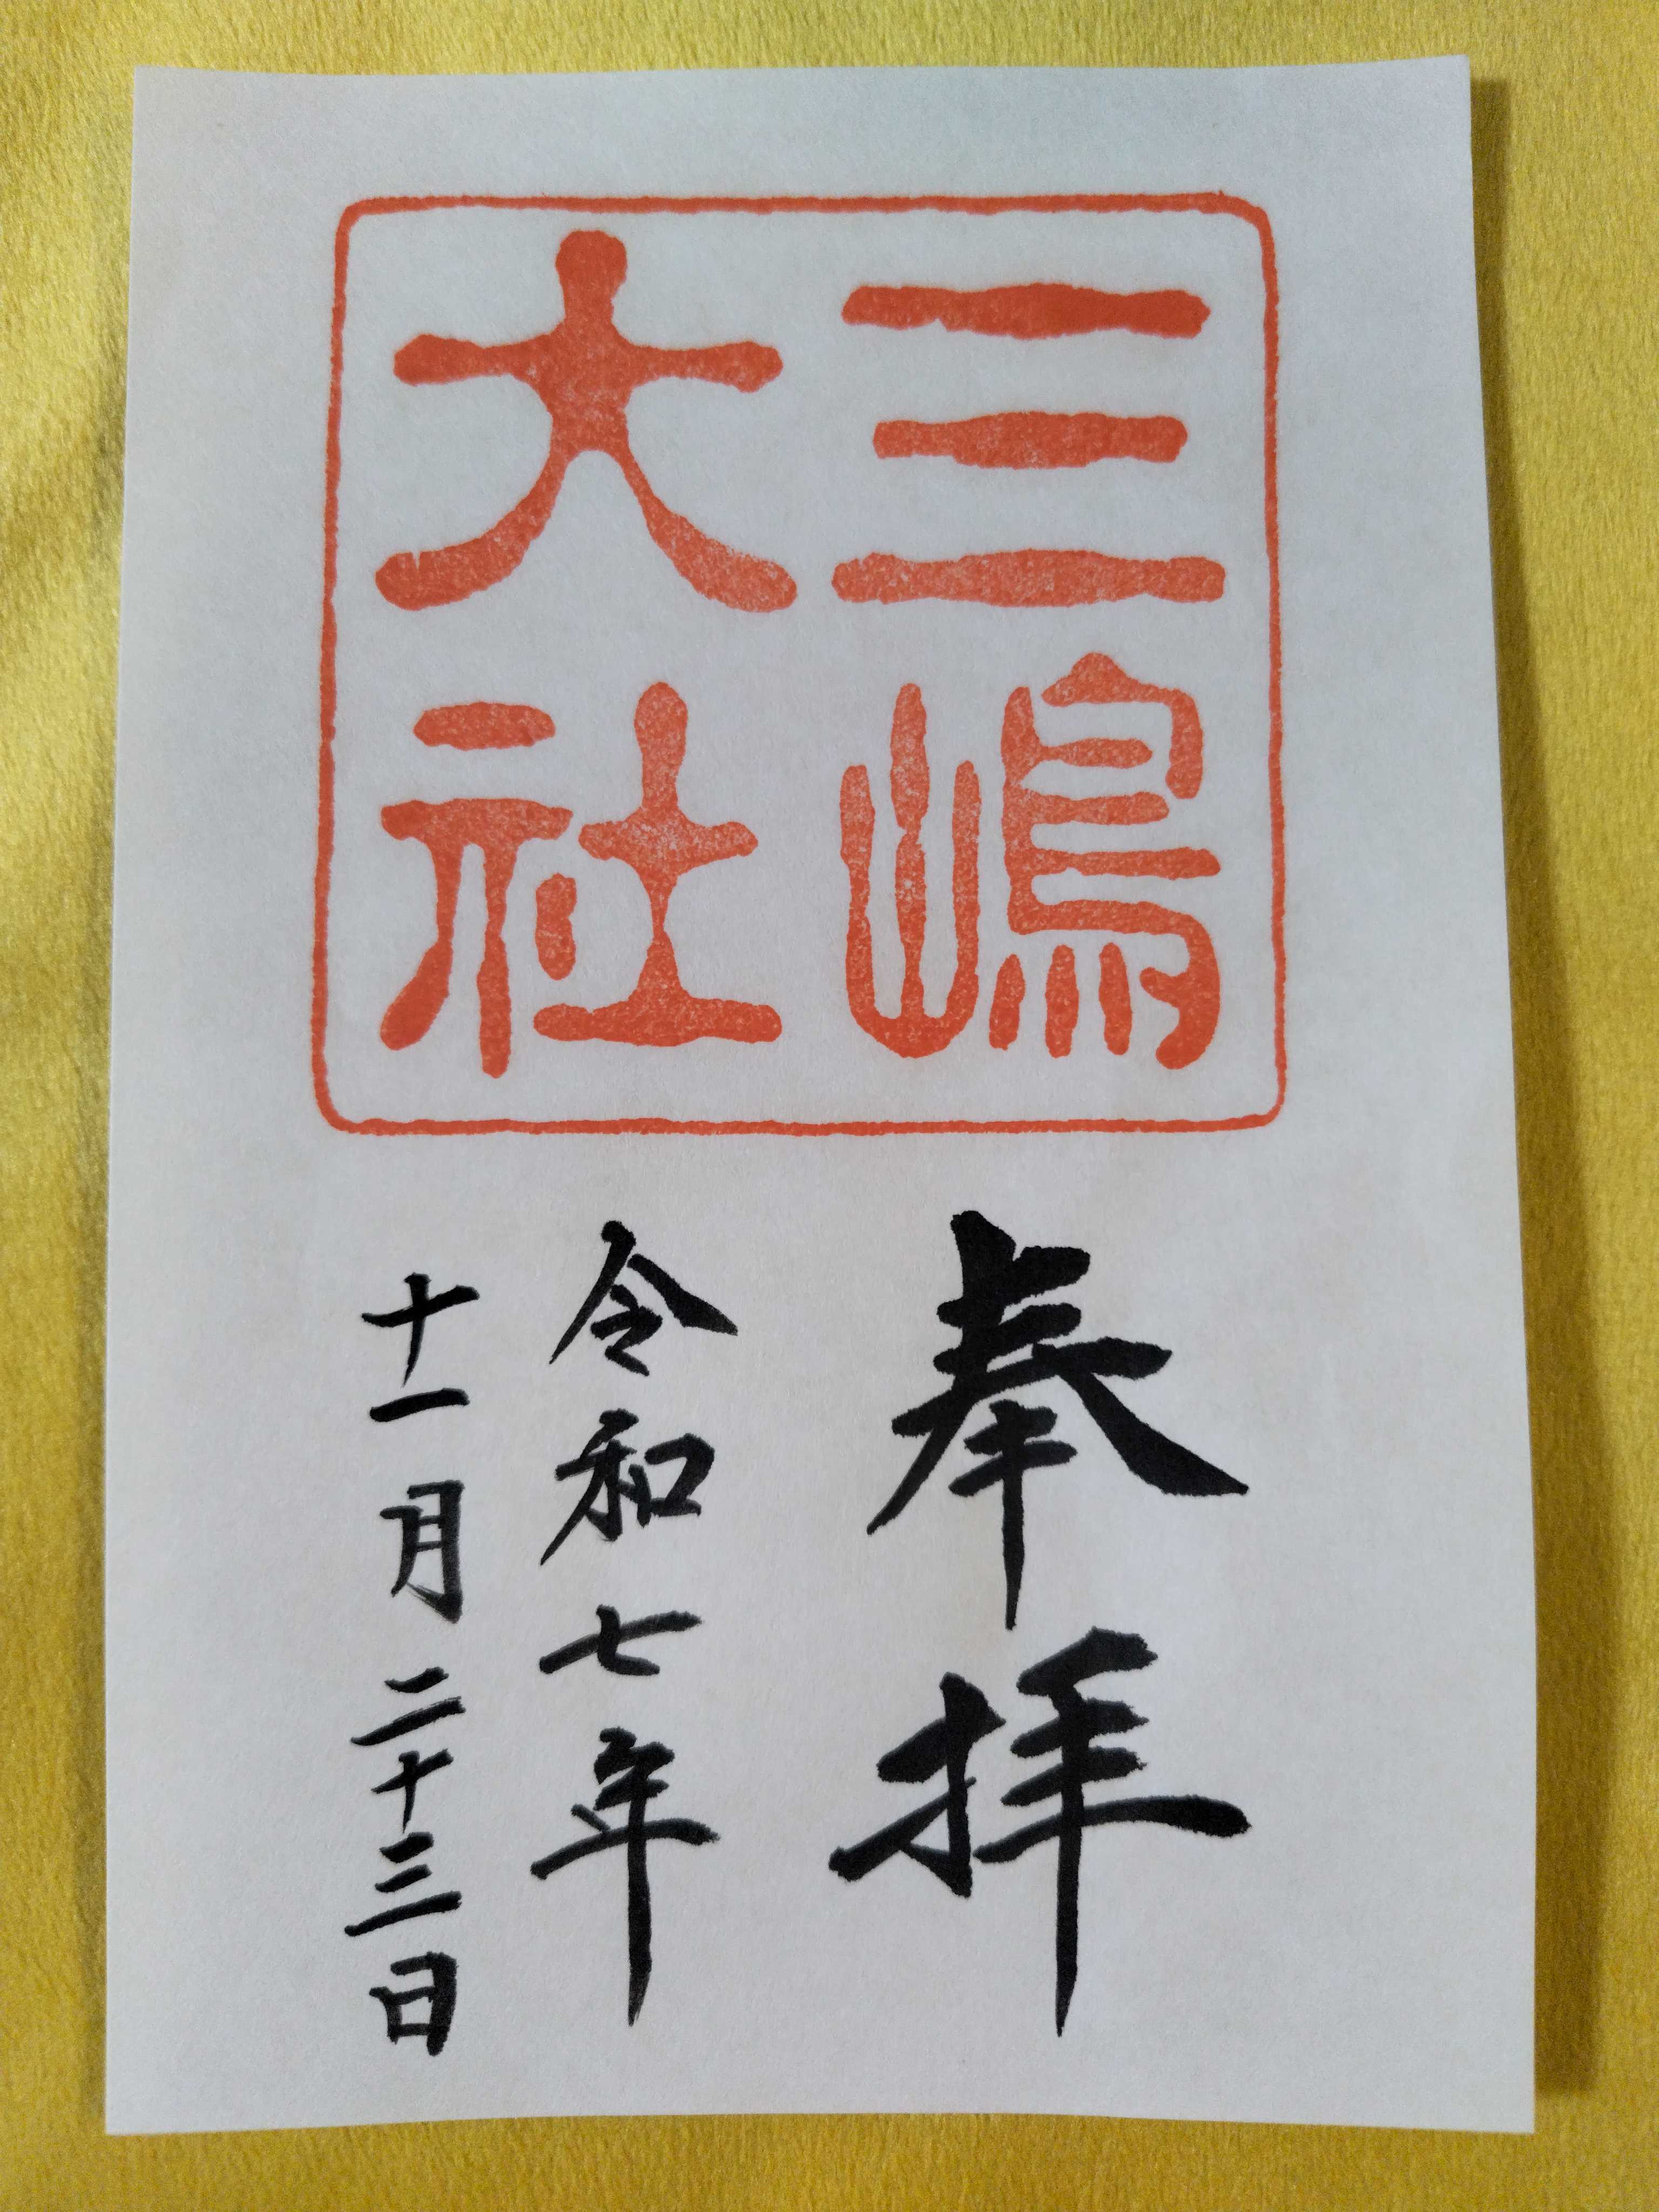 三嶋
大社
奉拝
令和七年
十一月二十三日